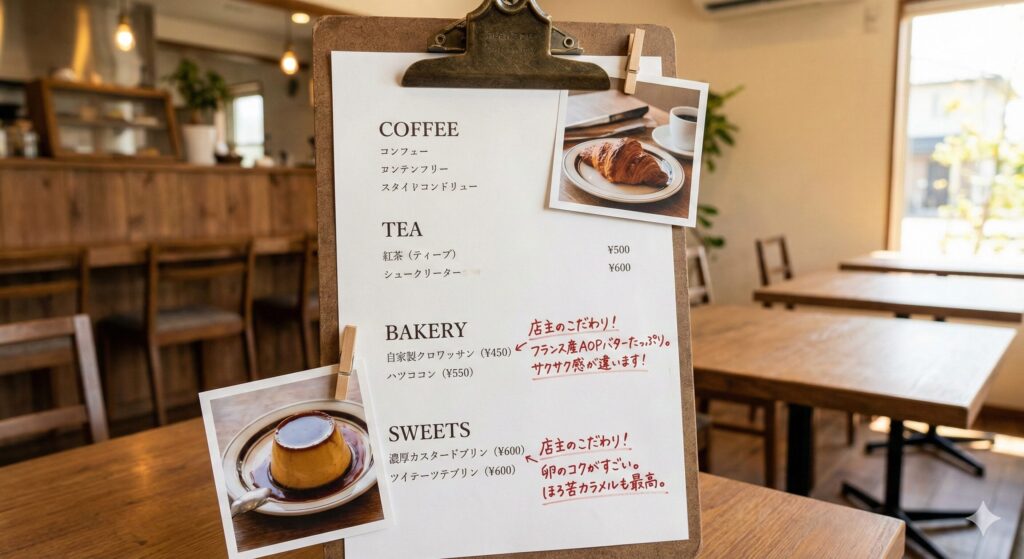 COFFEE
コンフェー
ロンテンフリー
スタイドコンドリュー
TEA
紅茶（ティーブ） ¥500
シュークリーター ¥600
BAKERY
自家製クロワッサン（¥450）
ハツココン（¥550）
店主のこだわり！
フランス産AOPバターたっぷり。
サクサク感が違います！
SWEETS
濃厚カスタードプリン（¥600）
ツイテーツテプリン（¥600）
店主のこだわり！
卵のコクがすごい。
ほろ苦カラメルも最高。